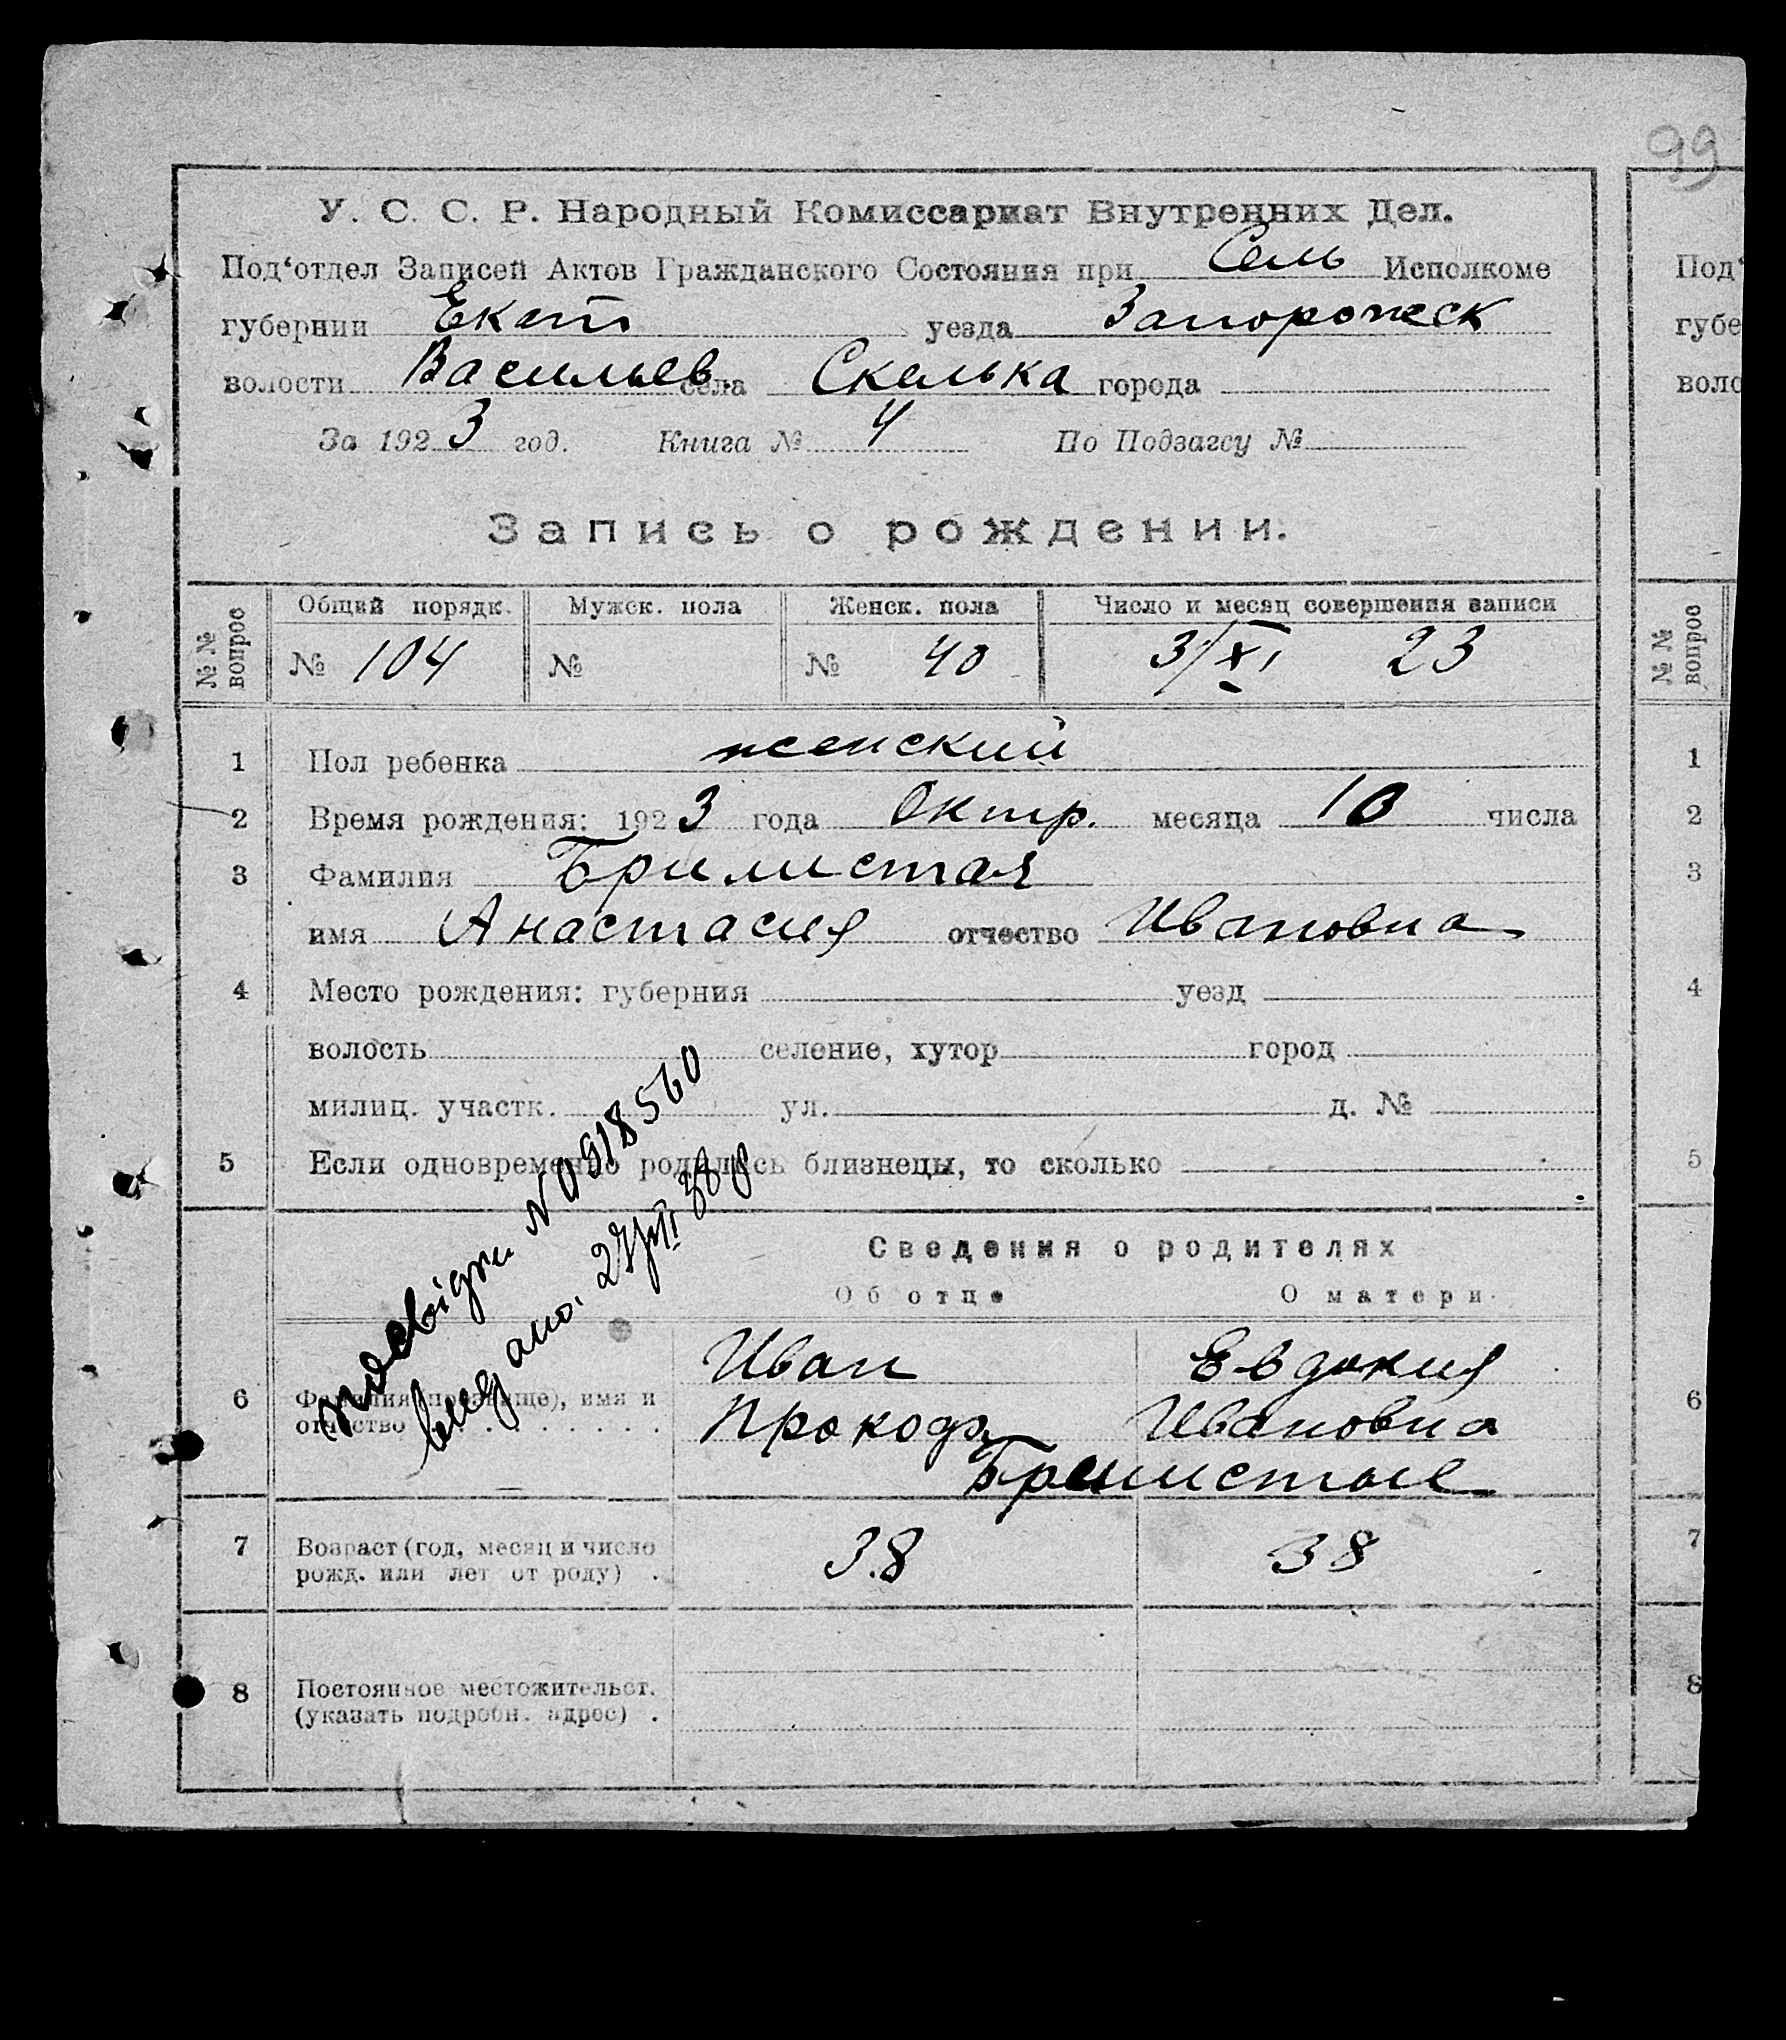 99
У. С. С. Р. Народный Комиссариат Внутренних Дел.
Под‘отдел Записей Актов Гражданского Состояния при Сель Исполкоме
губернии Екат уезда Запорожск
волости Васильев села Скелька города
За 1923 год. Книга № 4 По Подзагсу №
Запись о рождении.
№№ вопрос
Общий порядк. Мужск. пола Женск. пола Число и месяц совершения записи
№ 104 № № 40 3/XI 23
1 Пол ребенка женский
2 Время рождения: 1923 года Октяр. месяца 10 числа
3 Фамилия Бримистая
имя Анастасия отчество Ивановна
4 Место рождения: губерния уезд
волость селение, хутор город
милиц. участк. ул. д. №
5 Если одновременно родились близнецы, то сколько
Сведения о родителях
Об отце О матери
6 Фамилия (прозвище), имя и отчество
Иван Евдокия
Прокоф. Ивановна
Бримистые
7 Возраст (год, месяц и число рожд. или лет от роду) . 38 38
8 Постоянное местожительст. (указать подробн. адрес) .
N 0918560
Под‘
губе
воло
№№ вопрос
1
2
3
4
5
6
7
8